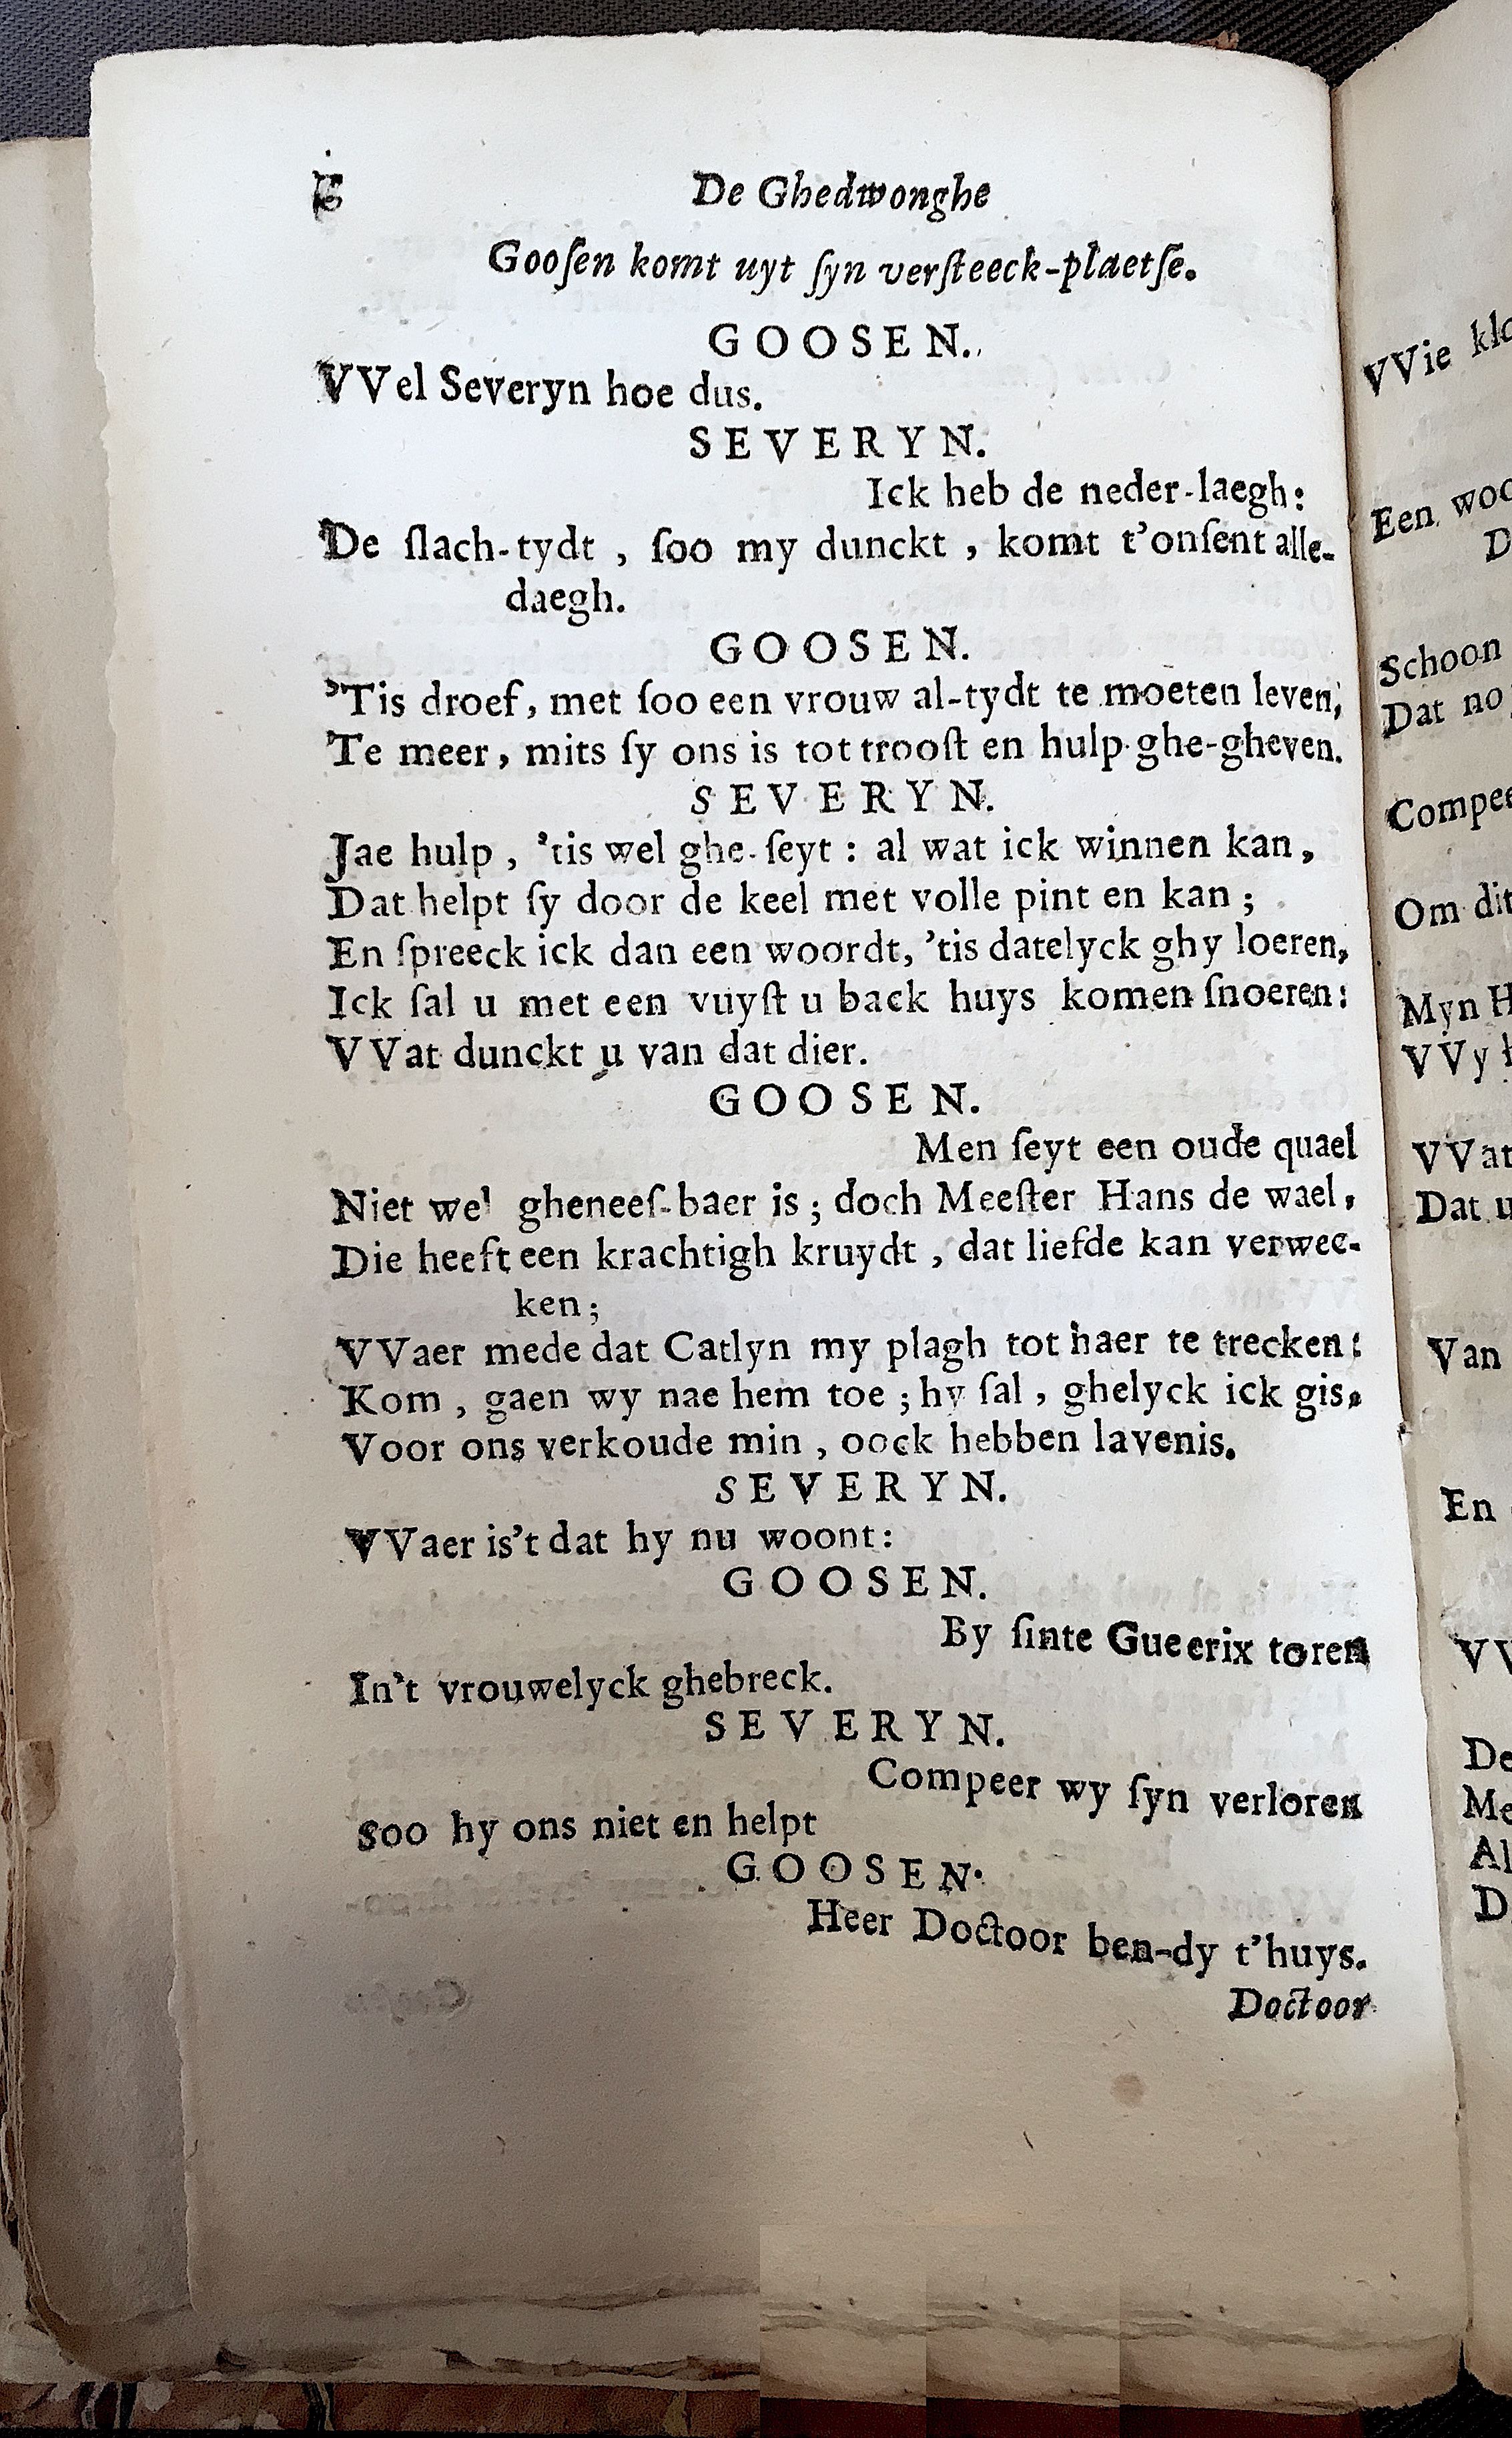 6
De Ghedwonghe
Gooſen komt uyt ſyn verſteeck-plaetſe.
GOOSEN.
VVel Severyn hoe dus.
SEVERYN.
Ick heb de neder-laegh:
De ſlach-tydt , ſoo my dunckt , komt t'onſent alle-
daegh.
GOOSEN.
'Tis droef, met ſoo een vrouw al-tydt te moeten leven,
Te meer, mits ſy ons is tot trooſt en hulp ghe-gheven.
SEVERYN.
Jae hulp , 'tis wel ghe-ſeyt : al wat ick winnen kan,
Dat helpt ſy door de keel met volle pint en kan ;
En ſpreeck ick dan een woordt, 'tis datelyck ghy loeren,
Ick ſal u met een vuyſt u back huys komen ſnoeren:
VVat dunckt u van dat dier.
GOOSEN.
Men ſeyt een oude quael
Niet wel gheneeſ-baer is ; doch Meeſter Hans de wael,
Die heeft een krachtigh kruydt , dat liefde kan verwec-
ken;
VVaer mede dat Catlyn my plagh tot haer te trecken:
Kom , gaen wy nae hem toe ; hy ſal , ghelyck ick gis,
Voor ons verkoude min , oock hebben lavenis.
SEVERYN.
VVaer is't dat hy nu woont:
GOOSEN.
By ſinte Gueerix toren
In't vrouwelyck ghebreck.
SEVERYN.
Compeer wy ſyn verloren
soo hy ons niet en helpt
GOOSEN.
Heer Doctoor ben-dy t'huys.
Doctoor
VVie
Een
Schoon
Dat no
Om dit
Myn H
VVy
VVat
Dat u
Van
En
De
Me
Al
D